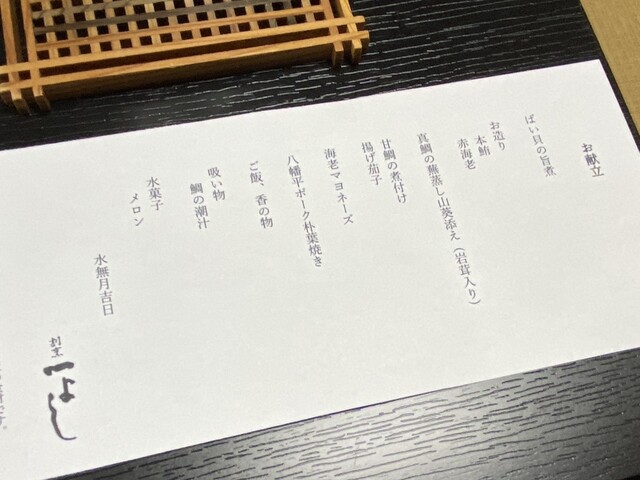 お献立
ばい貝の旨煮
お造り
本鮪
赤海老
真鯛の蕪蒸し山葵添え（岩茸入り）
甘鯛の煮付け
揚げ茄子
海老マヨネーズ
八幡平ポーク朴葉焼き
ご飯、香の物
吸い物
鯛の潮汁
水菓子
メロン
水無月吉日
割烹